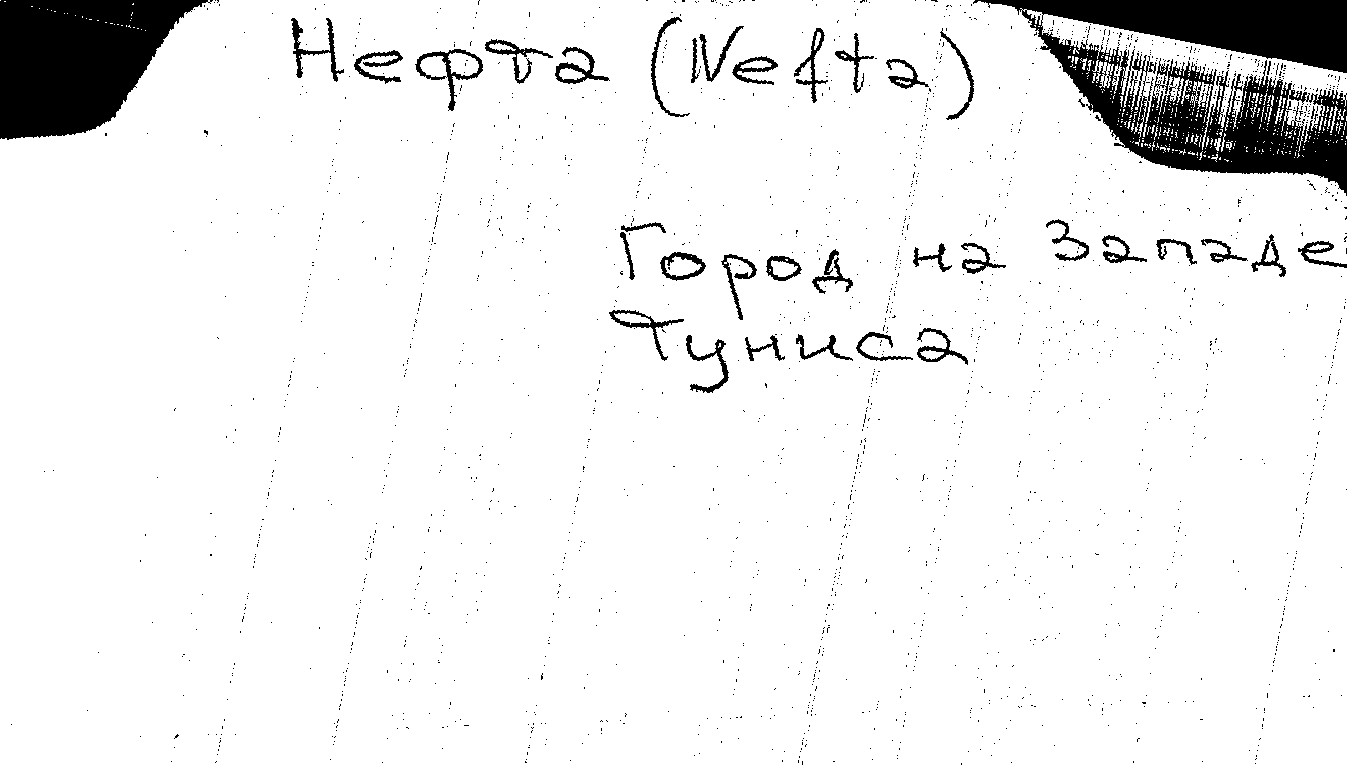 Нефта (Nefta)
Город на Западе
Туниса